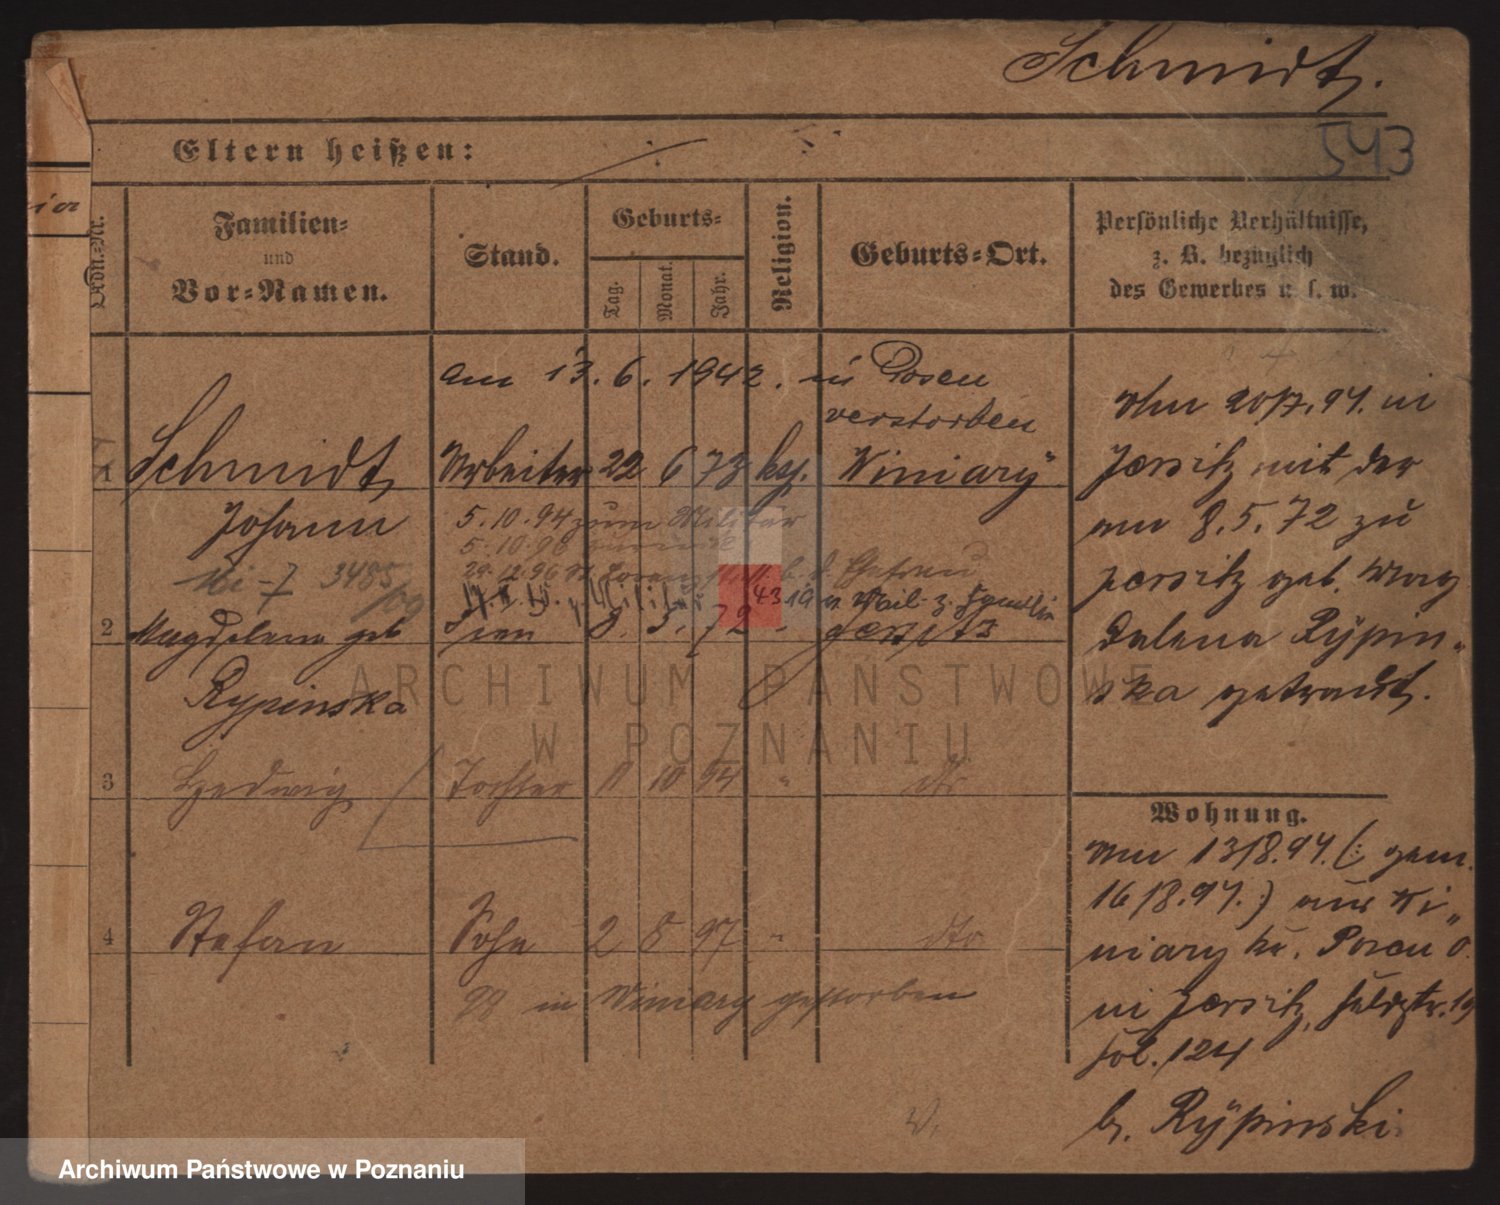 Schmidt.
543
Eltern heißen:
Lfde.-Nr.
Familien-
und
Vor-Namen.
Stand.
Geburts-
Tag.
Monat.
Jahr.
Religion.
Geburts-Ort.
Persönliche Verhältnisse,
z. B. bezüglich
des Gewerbes u. s. w.
am 13.6.1942. in Posen
verstorben
1 Schmidt, Arbeiter 22 6 73 kg. Winiary
Johann
5.10.94 zum Militär
5.10.96 zurück
3485/09
2 Magdalena geb Frau 8. 5. 72 Jersitz
Rypinska
3 Hedwig Tochter 11 10 94 " dto
4 Stefan Sohn 2 8 97 " dto
98 in Winiary gestorben
Am 20/7.94. in
Jersitz mit der
am 8.5.72 zu
Jersitz geb. Mag
dalena Rÿpin-
ska getraut.
Wohnung.
Am 13/8.94. (: gem.
16/8.94.:) aus Wi-
niary Kr. Posen O.
in Jersitz, Feldstr. 19
fol. 124
b. Rÿpinski
ARCHIWUM PAŃSTWOWE
W POZNANIU
Archiwum Państwowe w Poznaniu